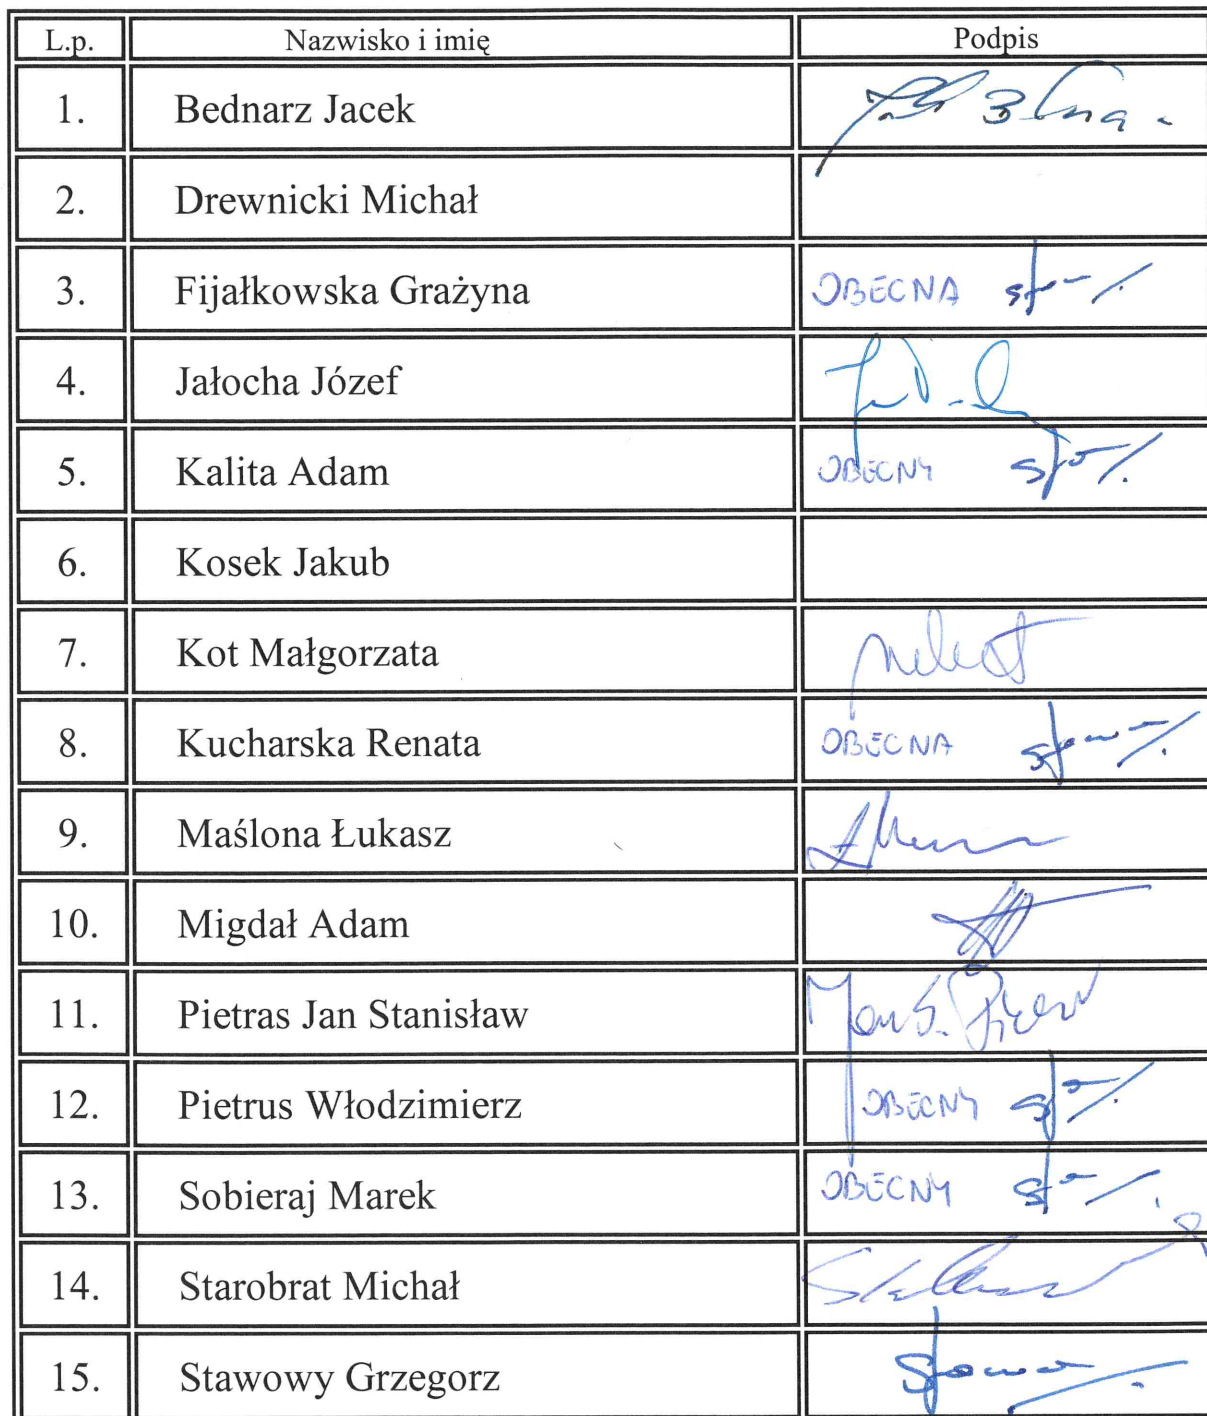 L.p. Nazwisko i imię Podpis
1. Bednarz Jacek
2. Drewnicki Michał
3. Fijałkowska Grażyna OBECNA
4. Jałocha Józef
5. Kalita Adam OBECNY
6. Kosek Jakub
7. Kot Małgorzata
8. Kucharska Renata OBECNA
9. Maślona Łukasz
10. Migdał Adam
11. Pietras Jan Stanisław
12. Pietrus Włodzimierz OBECNY
13. Sobieraj Marek OBECNY
14. Starobrat Michał
15. Stawowy Grzegorz